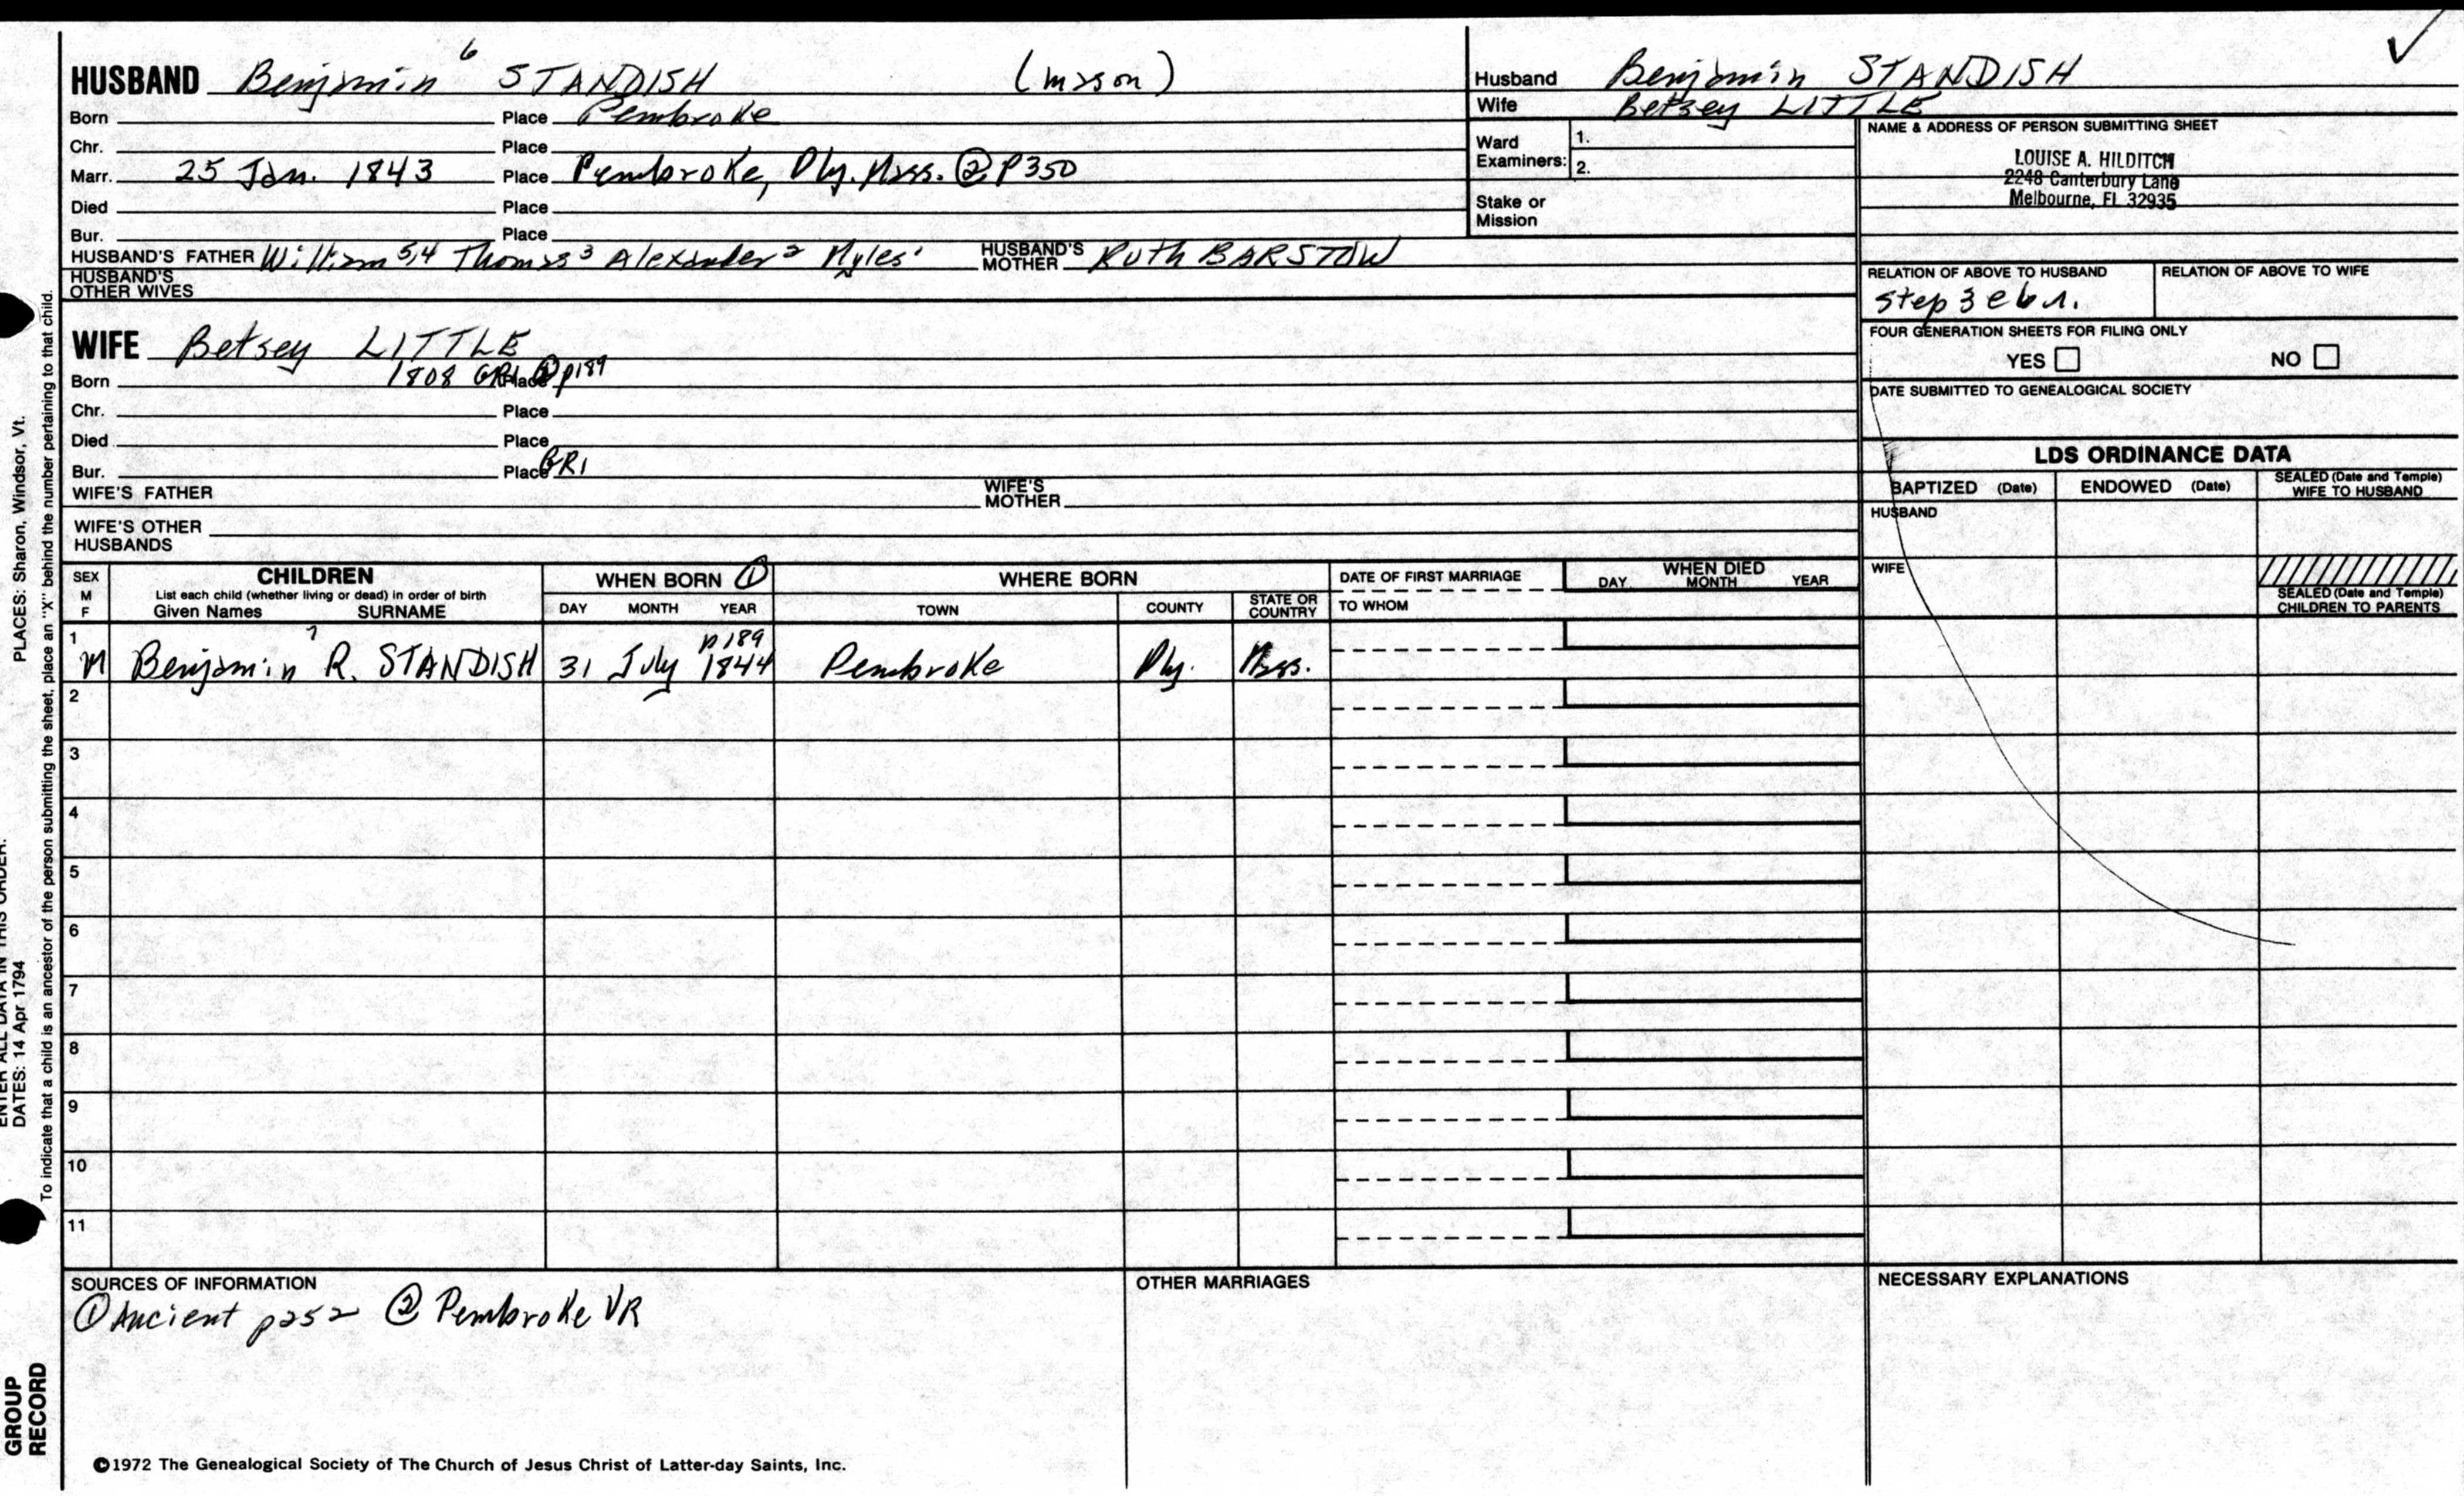 HUSBAND Benjamin 6 STANDISH (mason)
Born Place Pembroke
Chr. Place
Marr. 25 Jan. 1843 Place Pembroke, Ply. Mass. ② p350
Died Place
Bur. Place
HUSBAND'S FATHER William 5,4 Thomas 3 Alexander 2 Myles 1 HUSBAND'S MOTHER Ruth BARSTOW
HUSBAND'S OTHER WIVES
Husband Benjamin STANDISH
Wife Betsey LITTLE
Ward Examiners: 1.
2.
Stake or Mission
NAME & ADDRESS OF PERSON SUBMITTING SHEET
LOUISE A. HILDITCH
2248 Canterbury Lane
Melbourne, FL 32935
RELATION OF ABOVE TO HUSBAND RELATION OF ABOVE TO WIFE
Step
FOUR GENERATION SHEETS FOR FILING ONLY
YES NO
DATE SUBMITTED TO GENEALOGICAL SOCIETY
WIFE Betsey LITTLE
Born 1808 GR1 Place ② p189
Chr. Place
Died Place
Bur. Place GR1
WIFE'S FATHER WIFE'S MOTHER
WIFE'S OTHER HUSBANDS
LDS ORDINANCE DATA
BAPTIZED (Date) ENDOWED (Date) SEALED (Date and Temple) WIFE TO HUSBAND
HUSBAND
WIFE
SEALED (Date and Temple) CHILDREN TO PARENTS
SEX M F
CHILDREN
List each child (whether living or dead) in order of birth
Given Names SURNAME
WHEN BORN ①
DAY MONTH YEAR
WHERE BORN
TOWN COUNTY STATE OR COUNTRY
DATE OF FIRST MARRIAGE
TO WHOM
WHEN DIED
DAY MONTH YEAR
p189
1 M Benjamin 7 R. STANDISH 31 July 1844 Pembroke Ply. Mass.
2
3
4
5
6
7
8
9
10
11
SOURCES OF INFORMATION
① Ancient p252 ② Pembroke VR
OTHER MARRIAGES
NECESSARY EXPLANATIONS
©1972 The Genealogical Society of The Church of Jesus Christ of Latter-day Saints, Inc.
PLACES: Sharon, Windsor, Vt.
ENTER ALL DATA IN THIS ORDER:
DATES: 14 Apr 1794
To indicate that a child is an ancestor of the person submitting the sheet, place an "X" behind the number pertaining to that child.
GROUP
RECORD